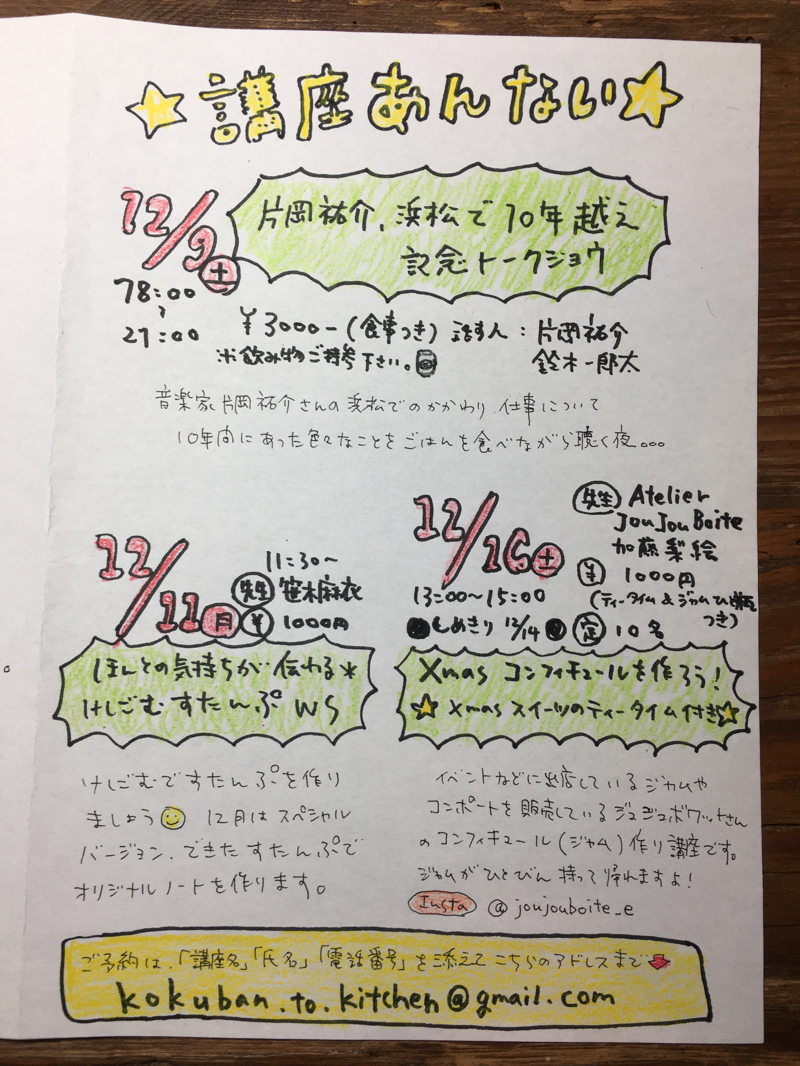 講座あんない
12/9
土
片岡祐介、浜松で10年越え
記念トークショウ
18:00
〜
21:00
¥3000-(食事つき) 話す人：片岡祐介
※飲み物ご持参下さい。 鈴木一郎太
音楽家片岡祐介さんの浜松でのかかわり、仕事について
10年間にあった色々なことをごはんを食べながら聴く夜。。。
12/11
月
11:30〜
先生 笹木麻衣
¥ 1000円
ほんとの気持ちが伝わる*
けしごむすたんぷWS
けしごむですたんぷを作り
ましょう 12月はスペシャル
バージョン、できたすたんぷで
オリジナルノートを作ります。
12/16
土
先生 Atelier
JouJouBoite
加藤梨絵
¥ 1000円
(ティータイム&ジャムひと瓶
つき)
13:00〜15:00
●しめきり 12/14● 定 10名
Xmas コンフィチュールを作ろう!
Xmasスイーツのティータイム付き
イベントなどに出店しているジャムや
コンポートを販売しているジュジュボワットさん
のコンフィチュール(ジャム)作り講座です。
ジャムがひとびん持って帰れますよ!
Insta @joujouboite_e
ご予約は、「講座名」「氏名」「電話番号」を添えてこちらのアドレスまで
kokuban.to.kitchen@gmail.com